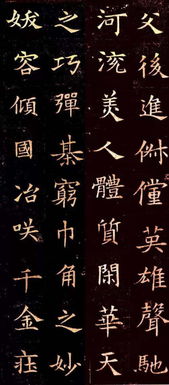 父後進僮英雄聲馳
河流美人體質閑華天
之巧彈基窮巾角之妙
容傾國冶咲千金莊